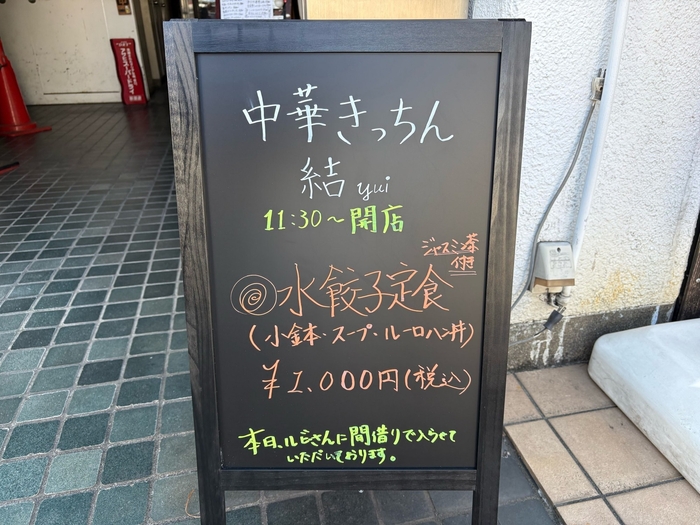 中華きっちん
結 yui
11:30～開店
ジャスミン茶
付
◎水餃子定食
(小鉢・スープ・ルーロハン丼)
¥1,000円(税込)
本日、ルビさんに間借りで入らせて
いただいております。